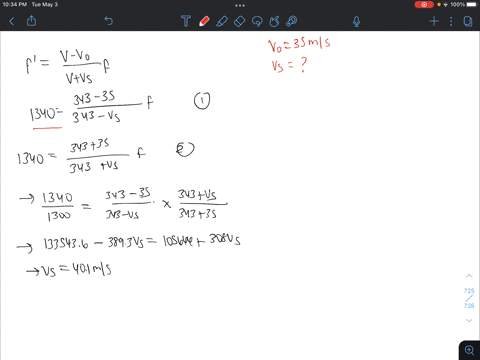 10:34 PM Tue May 3
100%
V₀ = 35 m/s
Vs = ?
f' = (V - V₀)/(V + Vs) f
1340 = (343 - 35)/(343 - Vs) f ①
1340 = (343 + 35)/(343 + Vs) f ②
→ 1340/1300 = (343 - 35)/(343 - Vs) × (343 + Vs)/(343 + 35)
→ 133543.6 - 389.3Vs = 105644 + 308Vs
→ Vs = 40.1 m/s
725
/
726